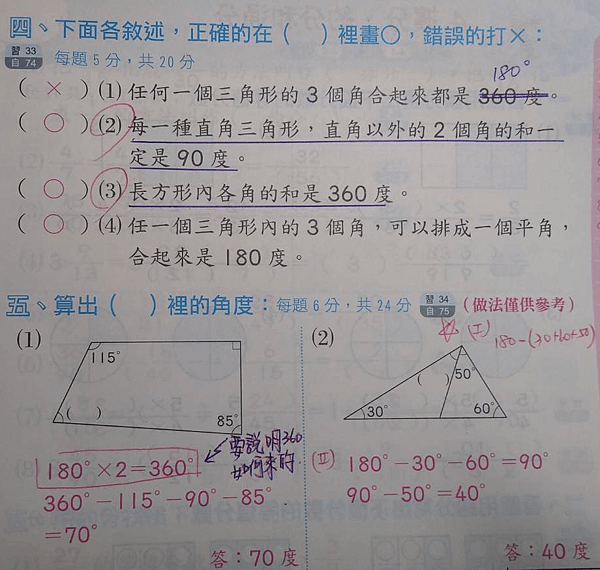 四、下面各敘述，正確的在（ ）裡畫○，錯誤的打×：
習33
自74
每題5分，共20分
180°
（ × ）(1) 任何一個三角形的3個角合起來都是360度。
（ ○ ）(2) 每一種直角三角形，直角以外的2個角的和一
定是90度。
（ ○ ）(3) 長方形內各角的和是360度。
（ ○ ）(4) 任一個三角形內的3個角，可以排成一個平角，
合起來是180度。
五、算出（ ）裡的角度：每題6分，共24分
習34
自75
（做法僅供參考）
(1)
115°
（ ）
85°
要說明360
如何來的
180°×2=360°
360°-115°-90°-85°
=70°
答：70度
(2)
(I) 180-(30+60+50)
（ ）
50°
30°
60°
(II) 180°-30°-60°=90°
90°-50°=40°
答：40度